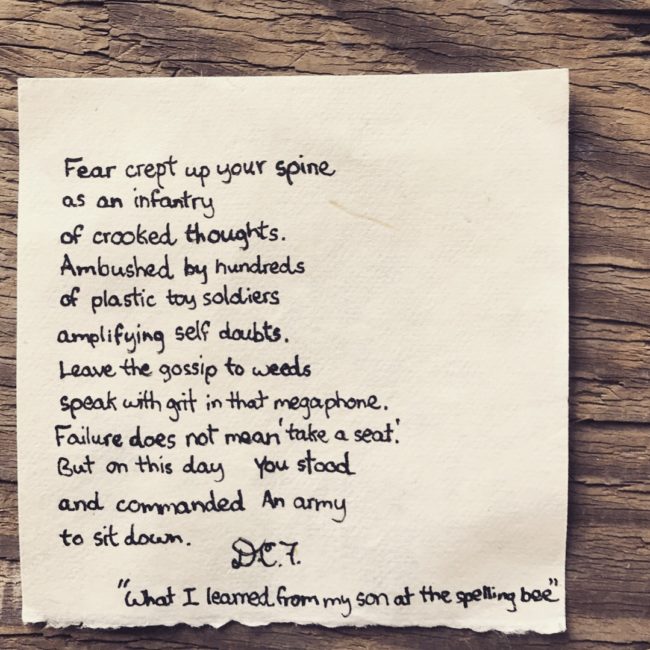 Fear crept up your spine
as an infantry
of crooked thoughts.
Ambushed by hundreds
of plastic toy soldiers
amplifying self doubts.
Leave the gossip to weeds
speak with grit in that megaphone.
Failure does not mean 'take a seat'.
But on this day you stood
and commanded An army
to sit down.
D.C.F.
"What I learned from my son at the spelling bee"